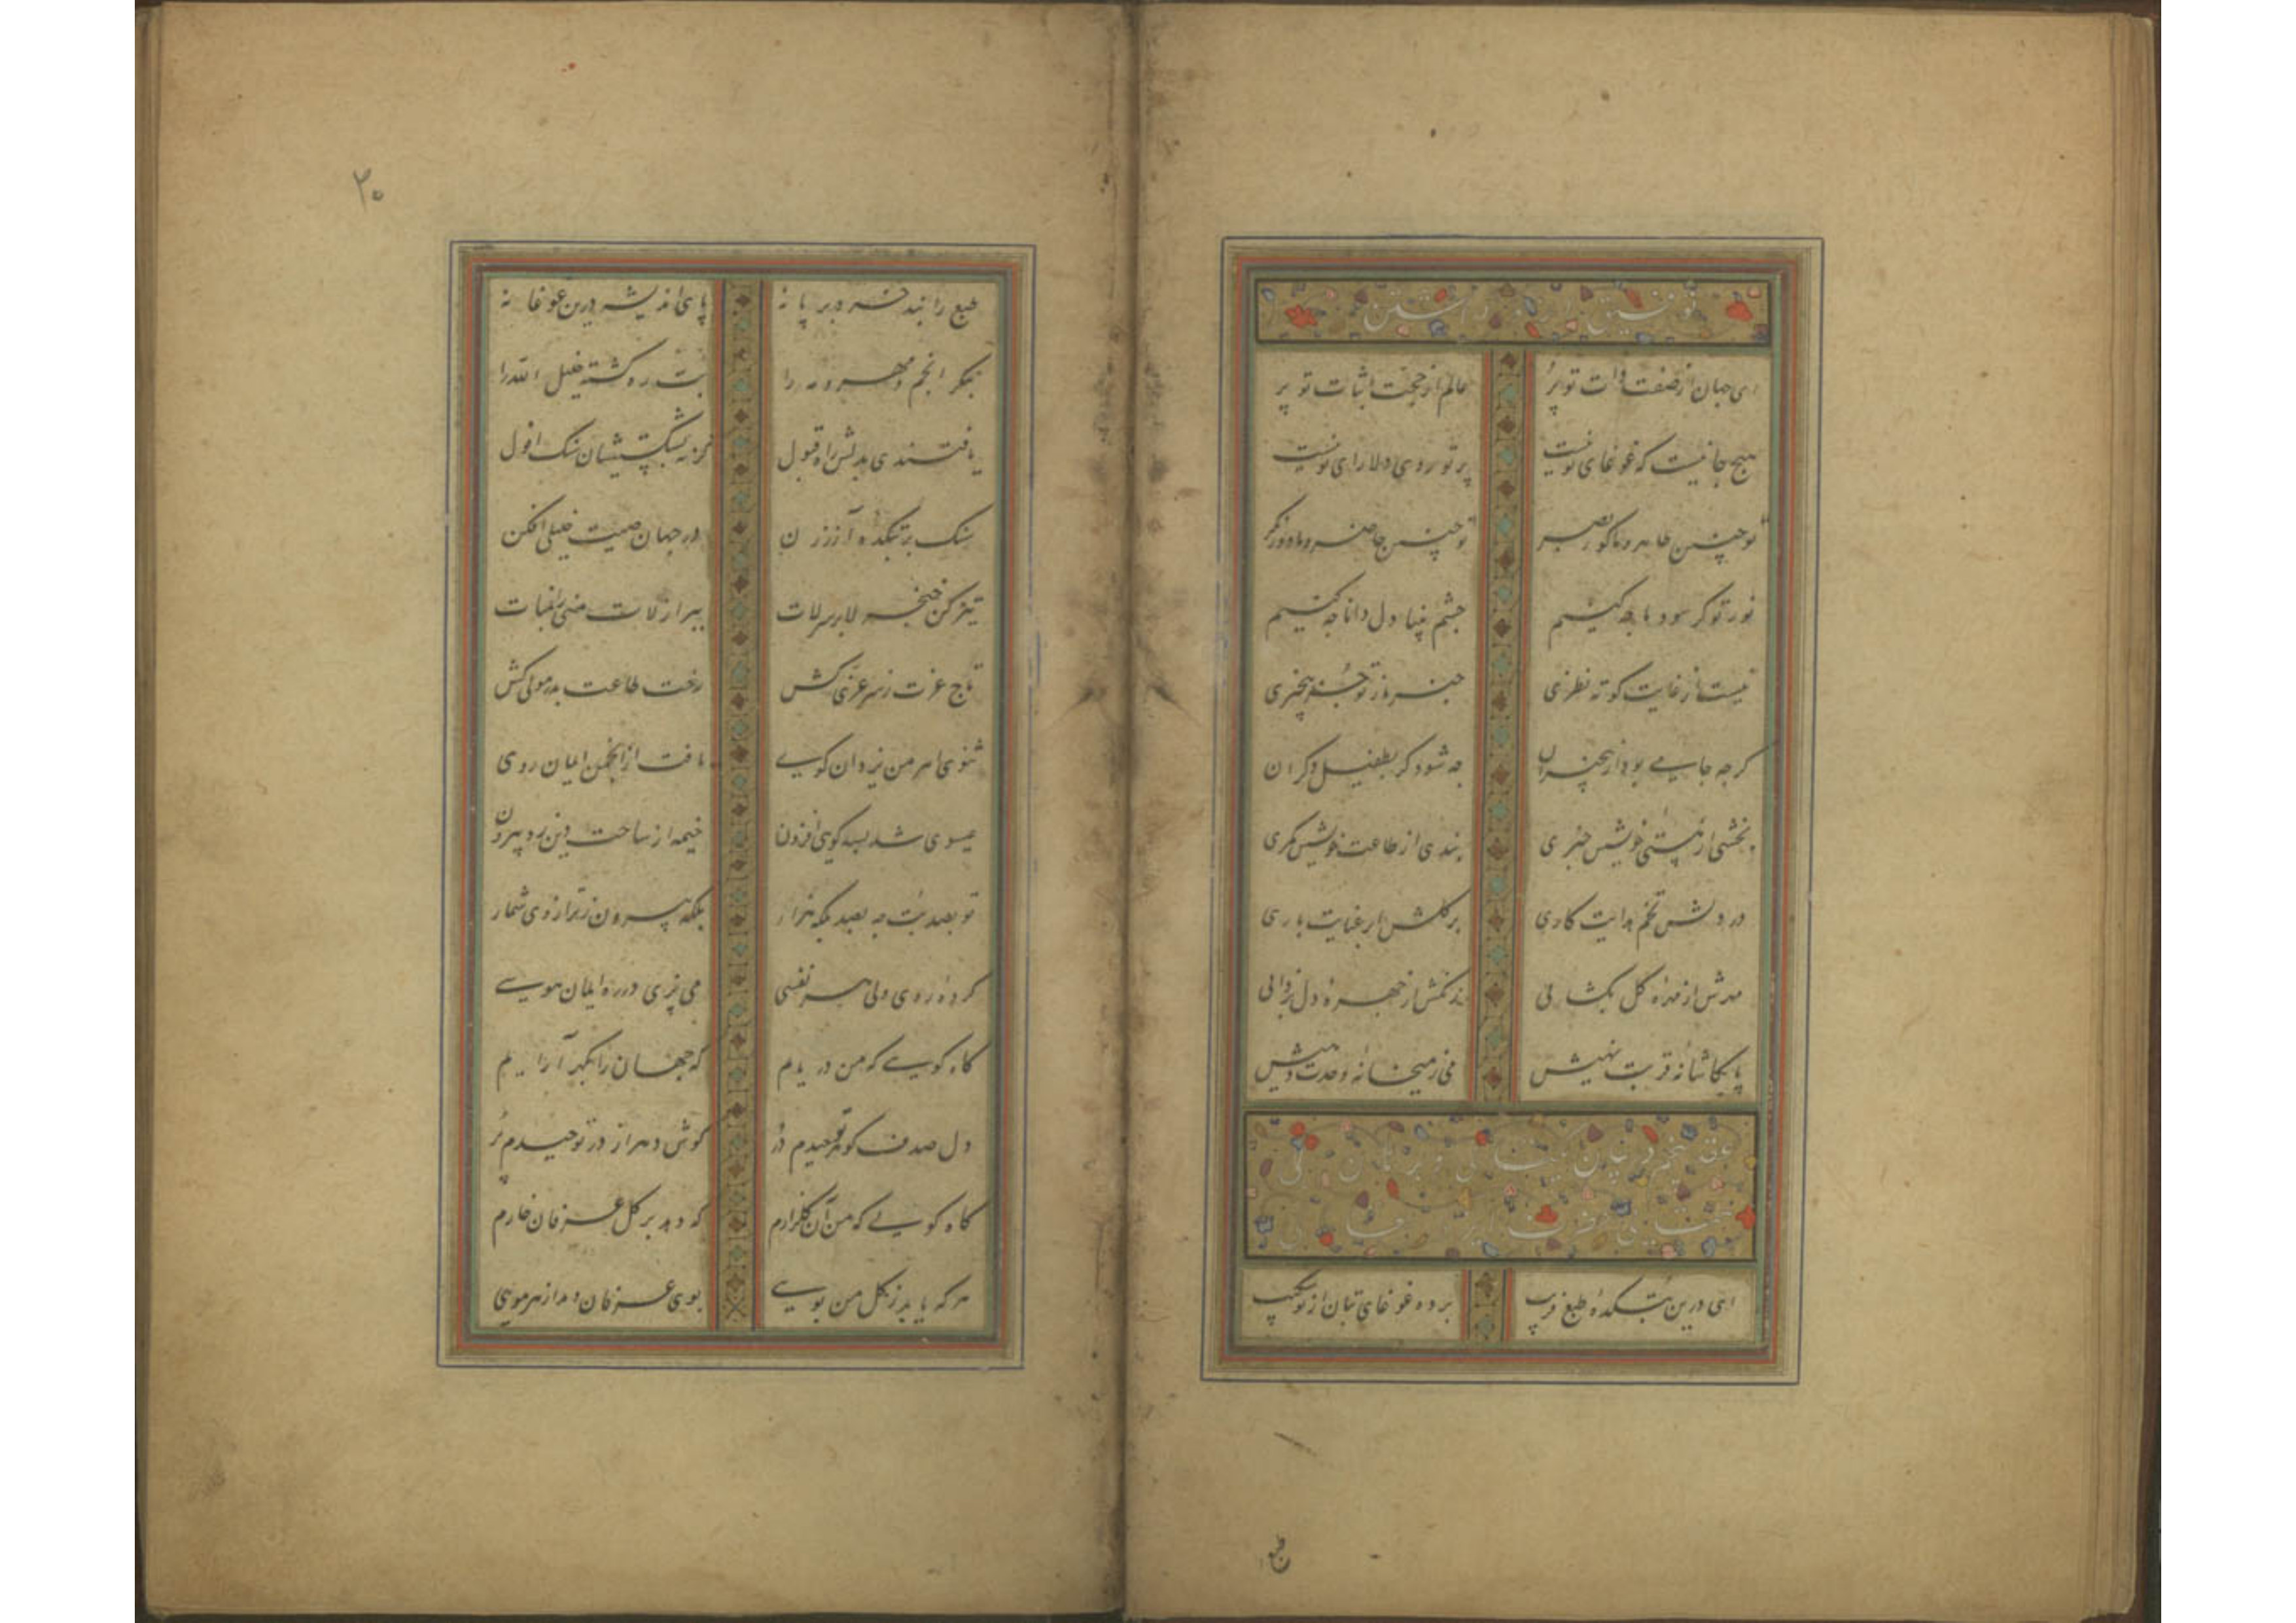 ای جهان از صفت ذات تو پر عالم از حجت اثبات تو پر
هیچ جا نیست که غوغای تو نیست پرتو روی دلارای تو نیست
تو چنین ظاهر و ما کور بصر تو چنین حاضر و ما دور نگر
نور تو گر نبود ما چه کنیم چشم بینا دل دانا چه کنیم
نیست از غایت کوته نظری خبر ما ز تو جز بیخبری
گرچه جامی بود از بیخبران چه شود گر بطفیل دگران
بخشی از هستی خویش خبری بندی از طاعت خویش کمری
در دلش تخم هدایت کاری بر گلش ابر عنایت باری
مهرش از مهرهٔ گل بکشائی زنگش از چهرهٔ دل بزدائی
پا بکاشانهٔ قربت نهیش می ز میخانهٔ وحدت دهیش
عقد پنجم در بیان
ای درین بتکدهٔ طبع فریب برده غوغای بتان از تو شکیب
طبع
۲۰
طبع را بند خرد بر پا نه پای اندیشه درین غوغا نه
بنگر انجم و مهر و مه را بت ره گشته خلیل الله را
یافتندی بدلش راه قبول گر نه بشکستیشان سنگ افول
سنگ بر بتکدهٔ آزر زن در جهان صیت خلیلی افکن
تیز کن خنجر لا بر سر لات ببر از لات منی را اثبات
تاج عزت ز سر عزی کش رخت طاعت بدر مولی کش
ثنوی اهرمن یزدان گوی تافت از انجمن ایمان روی
عیسوی شد بسه گوئی افزون خیمه از ساحت دین زد بیرون
تو بصد بت چه بصد بلکه هزار بلکه بیرون ز ترازوی شمار
کرده روی دلی هر نفسی می پزی در ره ایمان هوسی
گاه گویی که من دریایم که جهان را بگهر آرایم
دل صدف گوهر توحیدم در گوش دهر از در توحیدم پر
گاه گویی که من آن گلزارم که دهد بر گل عرفان خارم
هر که یابد ز گل من بویی بوی عرفان دمد از هر مویی